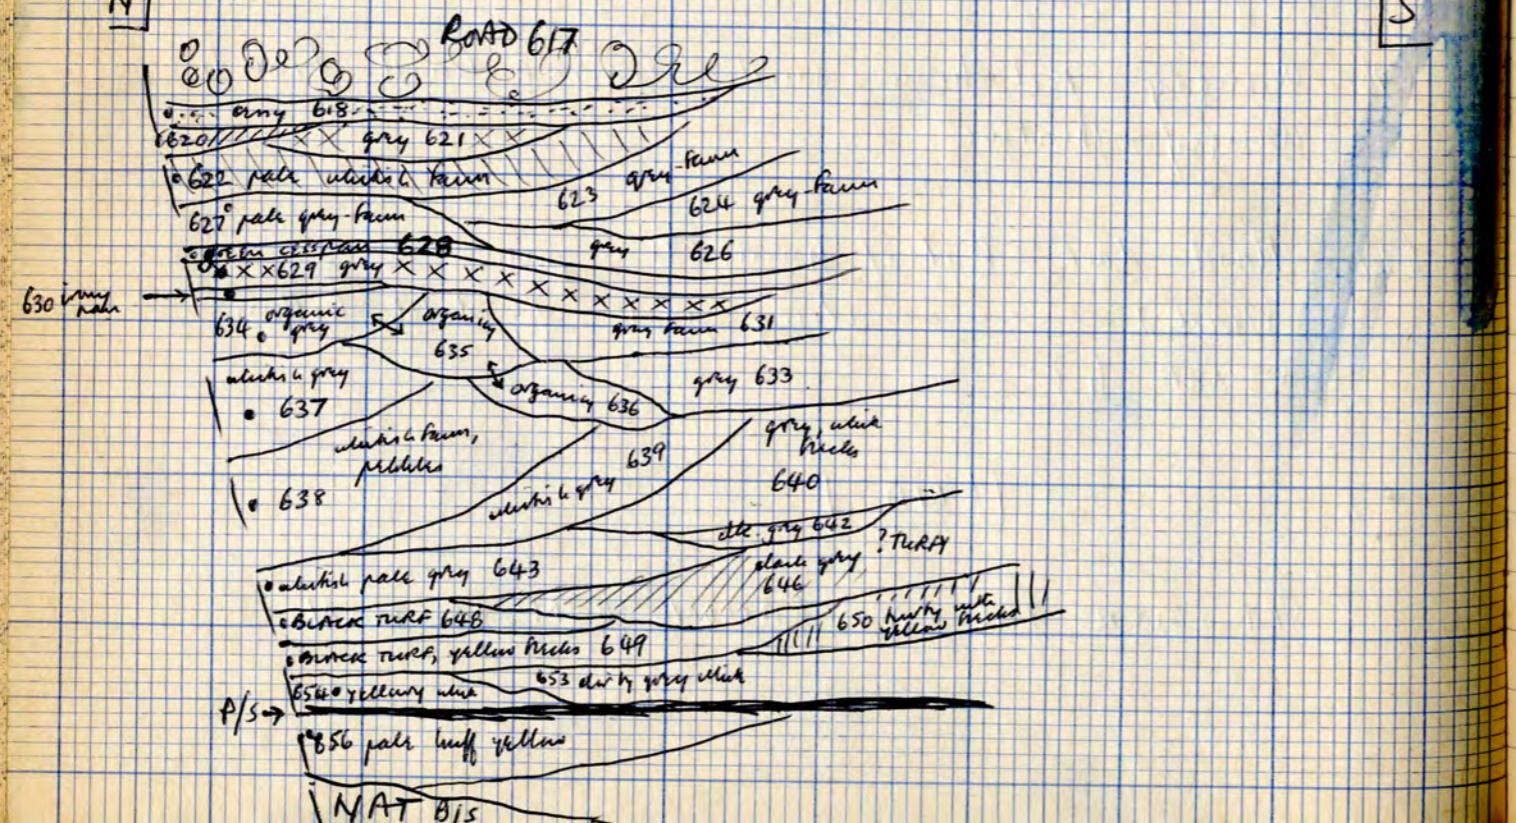 N
S
ROAD 617
orangy 618
620
grey 621
622 pale whitish fawn
623 grey-fawn
624 grey-fawn
627 pale grey-fawn
grey 626
green cess pan 628
629 grey
630 irony pan
634 organic grey
organic 635
grey fawn 631
grey 633
organic 636
whitish grey
637
whitish fawn, pebbles
638
639
whitish grey
grey, white flecks
640
dk. grey 642
whitish pale grey 643
dark grey 646
? TURFY
BLACK TURF 648
650 turfy with yellow flecks
BLACK TURF, yellow flecks 649
653 dirty grey white
654 yellowy white
P/S
656 pale buff yellow
NAT B/S